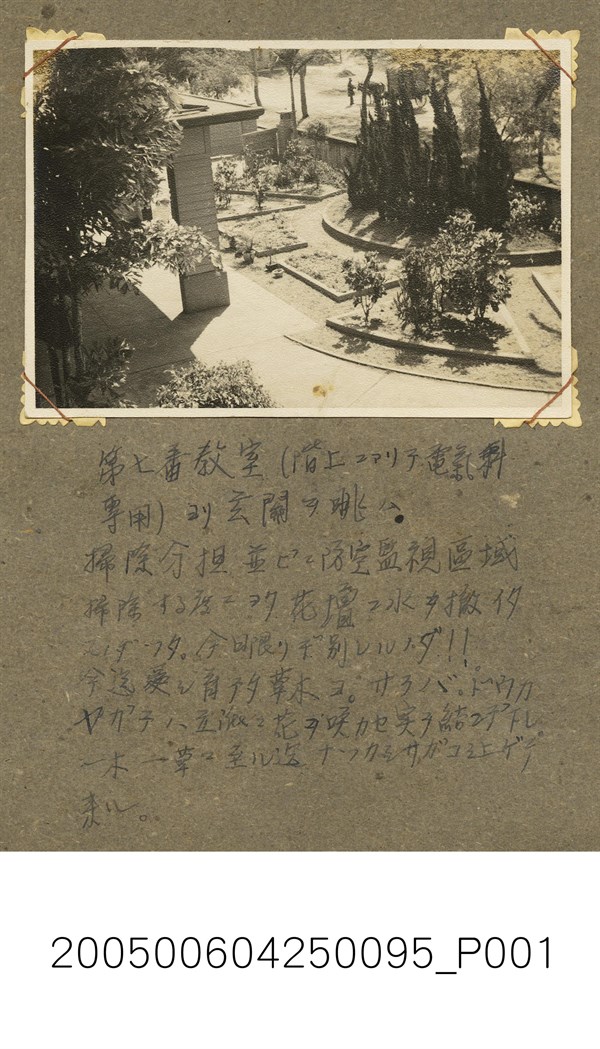 第七番教室(階上ニアリテ電氣科
専用)ヨリ玄關ヲ眺ム。
掃除分担並ビニ防空監視區域
掃除する度ニヨク花壇ニ水ヲ撒イタ
今日限リデ別レルノダ!!
今迄愛シ育テタ草木ヨ。サラバ。ドウカ
ヤガテハ立派ニ花ヲ咲カセ実ヲ結ンデトレ
一木一草ニ至ル迄ナツカシサガコミ上ゲテ
来ル。
200500604250095_P001